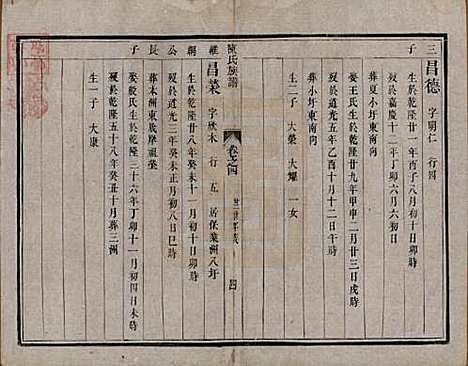 三子
昌德 字朗仁 行四
生於乾隆廿一年丙子八月初十日卯時
歿於嘉慶十二年丁卯六月初十日卯時
葬夏小圩東南向
娶王氏生於乾隆廿九年甲申二月廿三日戌時
歿於道光五年乙酉十月十二日午時
葬小圩東南向
生二子 大榮 大耀 一女
陳氏族譜 卷之四 四
維朝公長子
昌榮 字 木 行五 居保業洲八圩
生於乾隆廿八年癸未十一月初十日卯時
歿於道光三年癸未正月初八日巳時
葬本洲東成摩祖塋
娶殷氏生於乾隆三十六年 十一月初四日未時
歿於乾隆五十八年癸丑十月葬三洲
生一子 大康